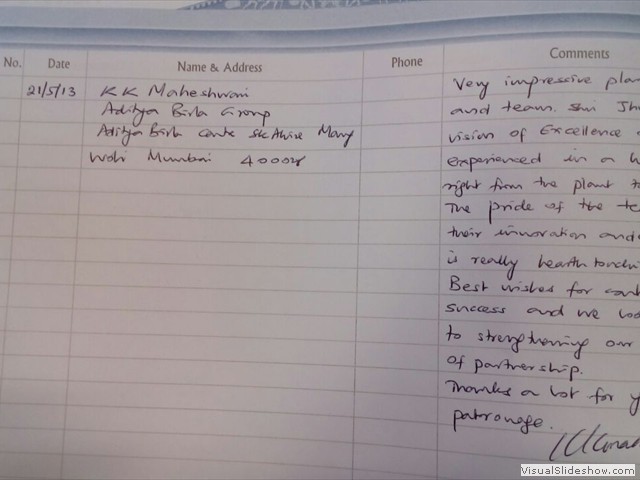 No. Date Name & Address Phone Comments
21/5/13 KK Maheshwari
Aditya Birla Group
Aditya Birla Centre SK Ahire Marg
Worli Mumbai
Very impressive plan
and team. Shri Jh
vision of Excellence
experienced in a
right from the plant t
The pride of the te
their innovation and
is really hearth touchi
Best wishes for cont
success and we loo
to strengthening our
of partnership.
Thanks a lot for y
patronage.
VisualSlideshow.com